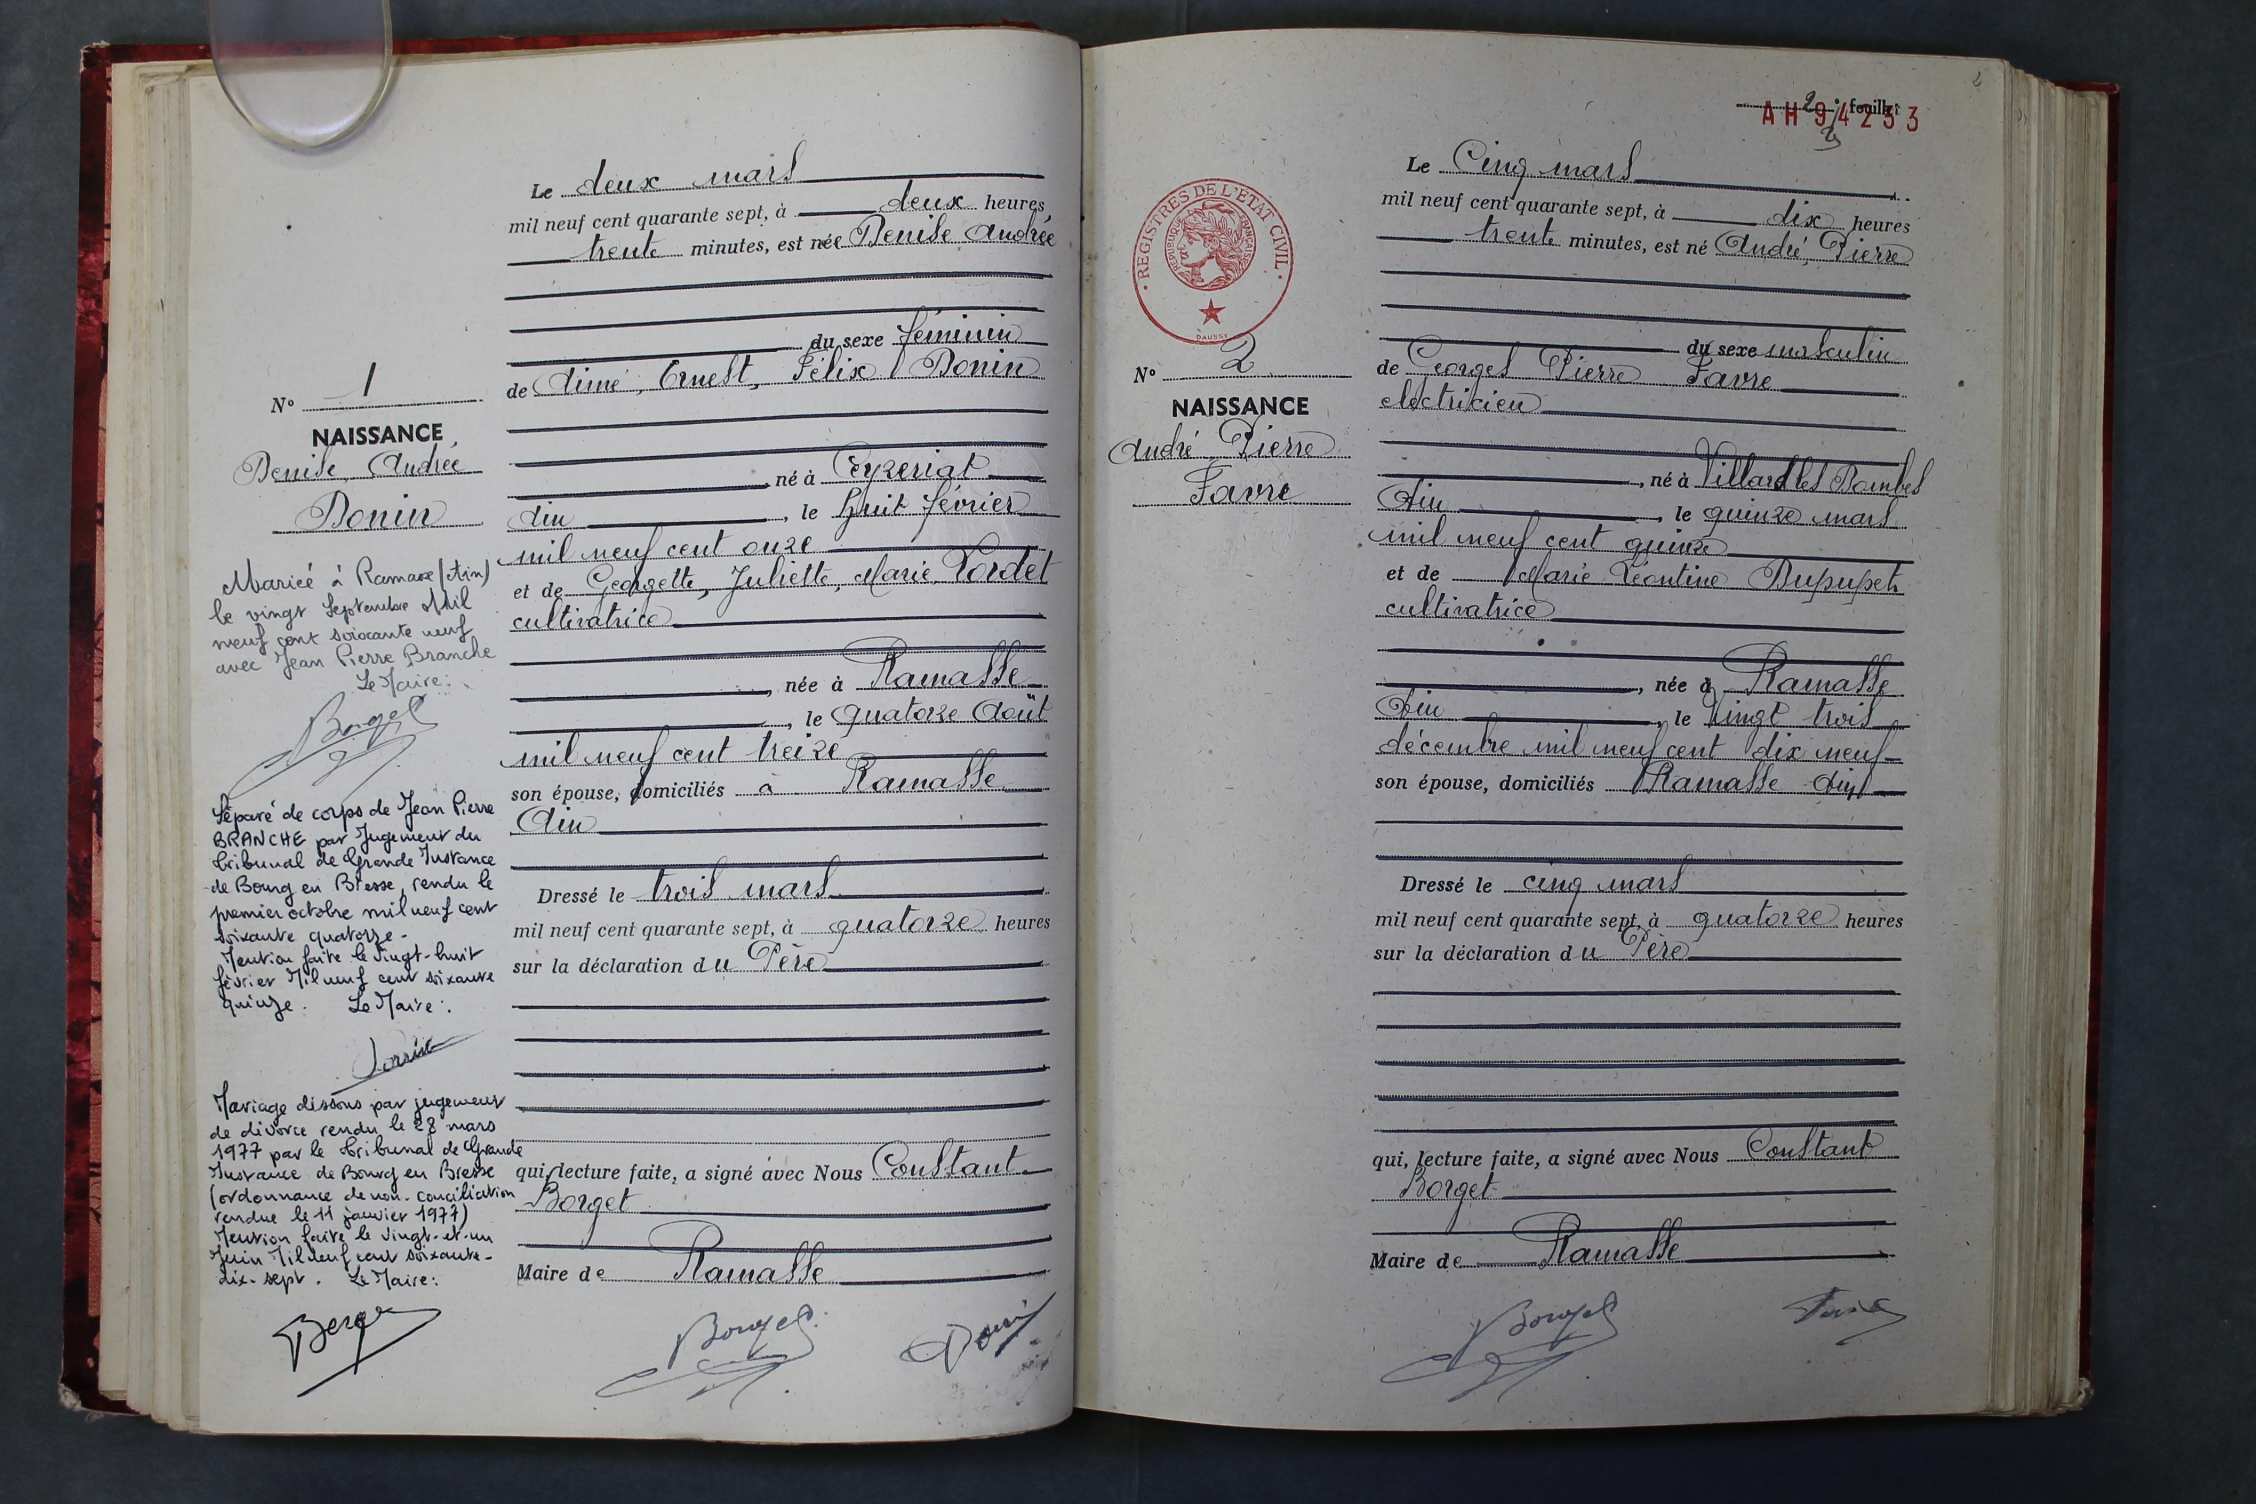 Le deux mars
mil neuf cent quarante sept, à deux heures
trente minutes, est née Denise Andrée
du sexe féminin
de Aimé, Ernest, Félix Donin
né à Ceyzeriat
Ain, le huit février
mil neuf cent onze
et de Georgette, Juliette, Marie
cultivatrice
, née à Ramasse
, le quatorze Août
mil neuf cent treize
son épouse, domiciliés à Ramasse
Ain
Dressé le trois mars
mil neuf cent quarante sept, à quatorze heures
sur la déclaration du Père
qui, lecture faite, a signé avec Nous Constant
Borget
Maire de Ramasse
Borget
Donin
N° 1
NAISSANCE
Denise, Andrée
Donin
Mariée à Ramasse (Ain)
le vingt Septembre Mil
neuf cent soixante neuf
avec Jean Pierre Branche
Le Maire:
Borget
Séparé de corps de Jean Pierre
BRANCHE par Jugement du
tribunal de Grande Instance
de Bourg en Bresse, rendu le
premier octobre mil neuf cent
soixante quatorze.
Mention faite le Vingt-huit
février Mil neuf cent soixante
quinze. Le Maire:
Mariage dissous par jugement
de divorce rendu le 28 mars
1977 par le tribunal de Grande
Instance de Bourg en Bresse
(ordonnance de non-conciliation
rendue le 11 janvier 1977)
Mention faite le Vingt-et-un
Juin Mil neuf cent soixante-
dix-sept. Le Maire:
2
2e feuillet
AH94233
REGISTRES DE L'ETAT CIVIL
REPUBLIQUE FRANÇAISE
DAUSSY
N° 2
NAISSANCE
André Pierre
Favre
Le Cinq mars
mil neuf cent quarante sept, à dix heures
trente minutes, est né André, Pierre
du sexe masculin
de Georges Pierre Favre
electricien
, né à Villars les Dombes
Ain, le quinze mars
mil neuf cent quinze
et de Marie Léontine Dupupet
cultivatrice
, née à Ramasse
Ain, le Vingt trois
décembre mil neuf cent dix neuf
son épouse, domiciliés Ramasse Ain
Dressé le cinq mars
mil neuf cent quarante sept, à quatorze heures
sur la déclaration du Père
qui, lecture faite, a signé avec Nous Constant
Borget
Maire de Ramasse
Borget
Favre